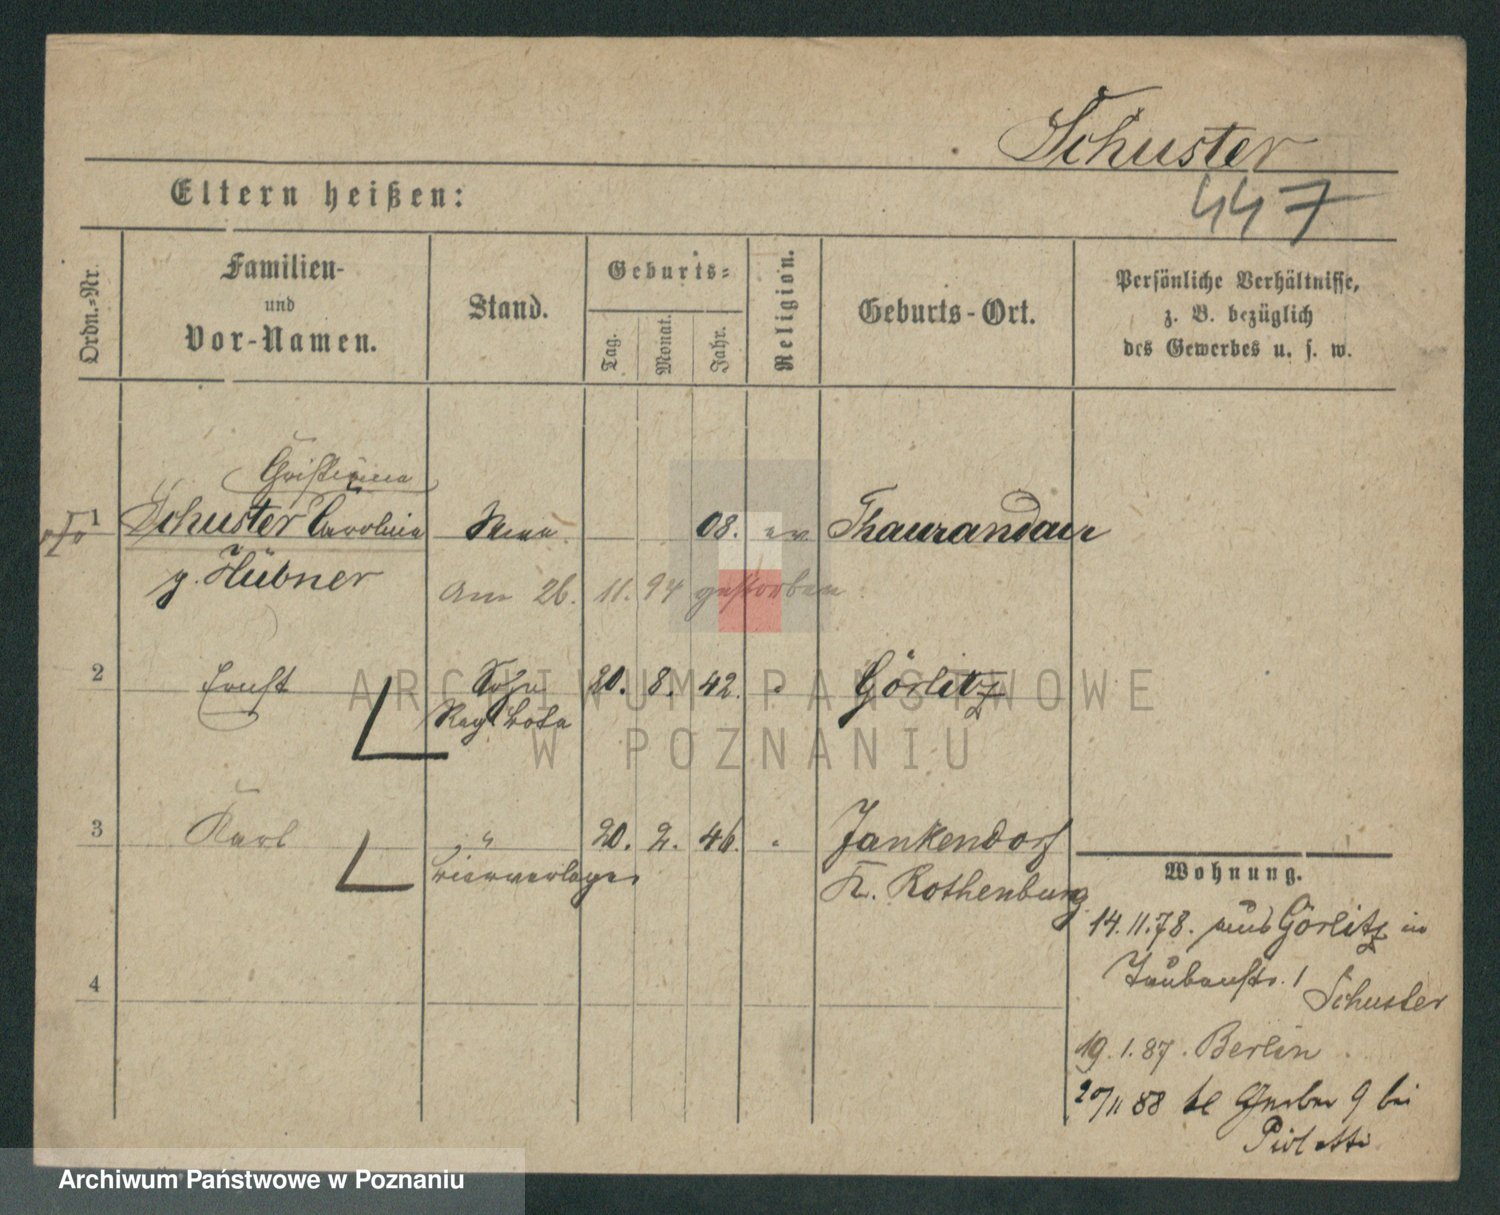 Schuster
447
Eltern heißen:
Ordn.-Nr.
Familien-
und
Vor-Namen.
Stand.
Geburts-
Tag.
Monat.
Jahr.
Religion.
Geburts-Ort.
Persönliche Verhältnisse,
z. B. bezüglich
des Gewerbes u. s. w.
Christiana
1 Schuster Caroline Wwe 08. ev Thaurandau
g. Hübner
Am 26. 11. 94 gestorben
2 Ernst Sohn 20. 8. 42. " Görlitz
Reg. Bote
3 Karl " 20. 2. 46. " Jankendorf
Bierverleger
K. Rothenburg
4
Wohnung.
14.11.78. aus Görlitz in
Taubenstr. 1
Schuster
19.1.87. Berlin
20/11 88 kl Gerber 9 bei
ARCHIWUM PAŃSTWOWE
W POZNANIU
Archiwum Państwowe w Poznaniu